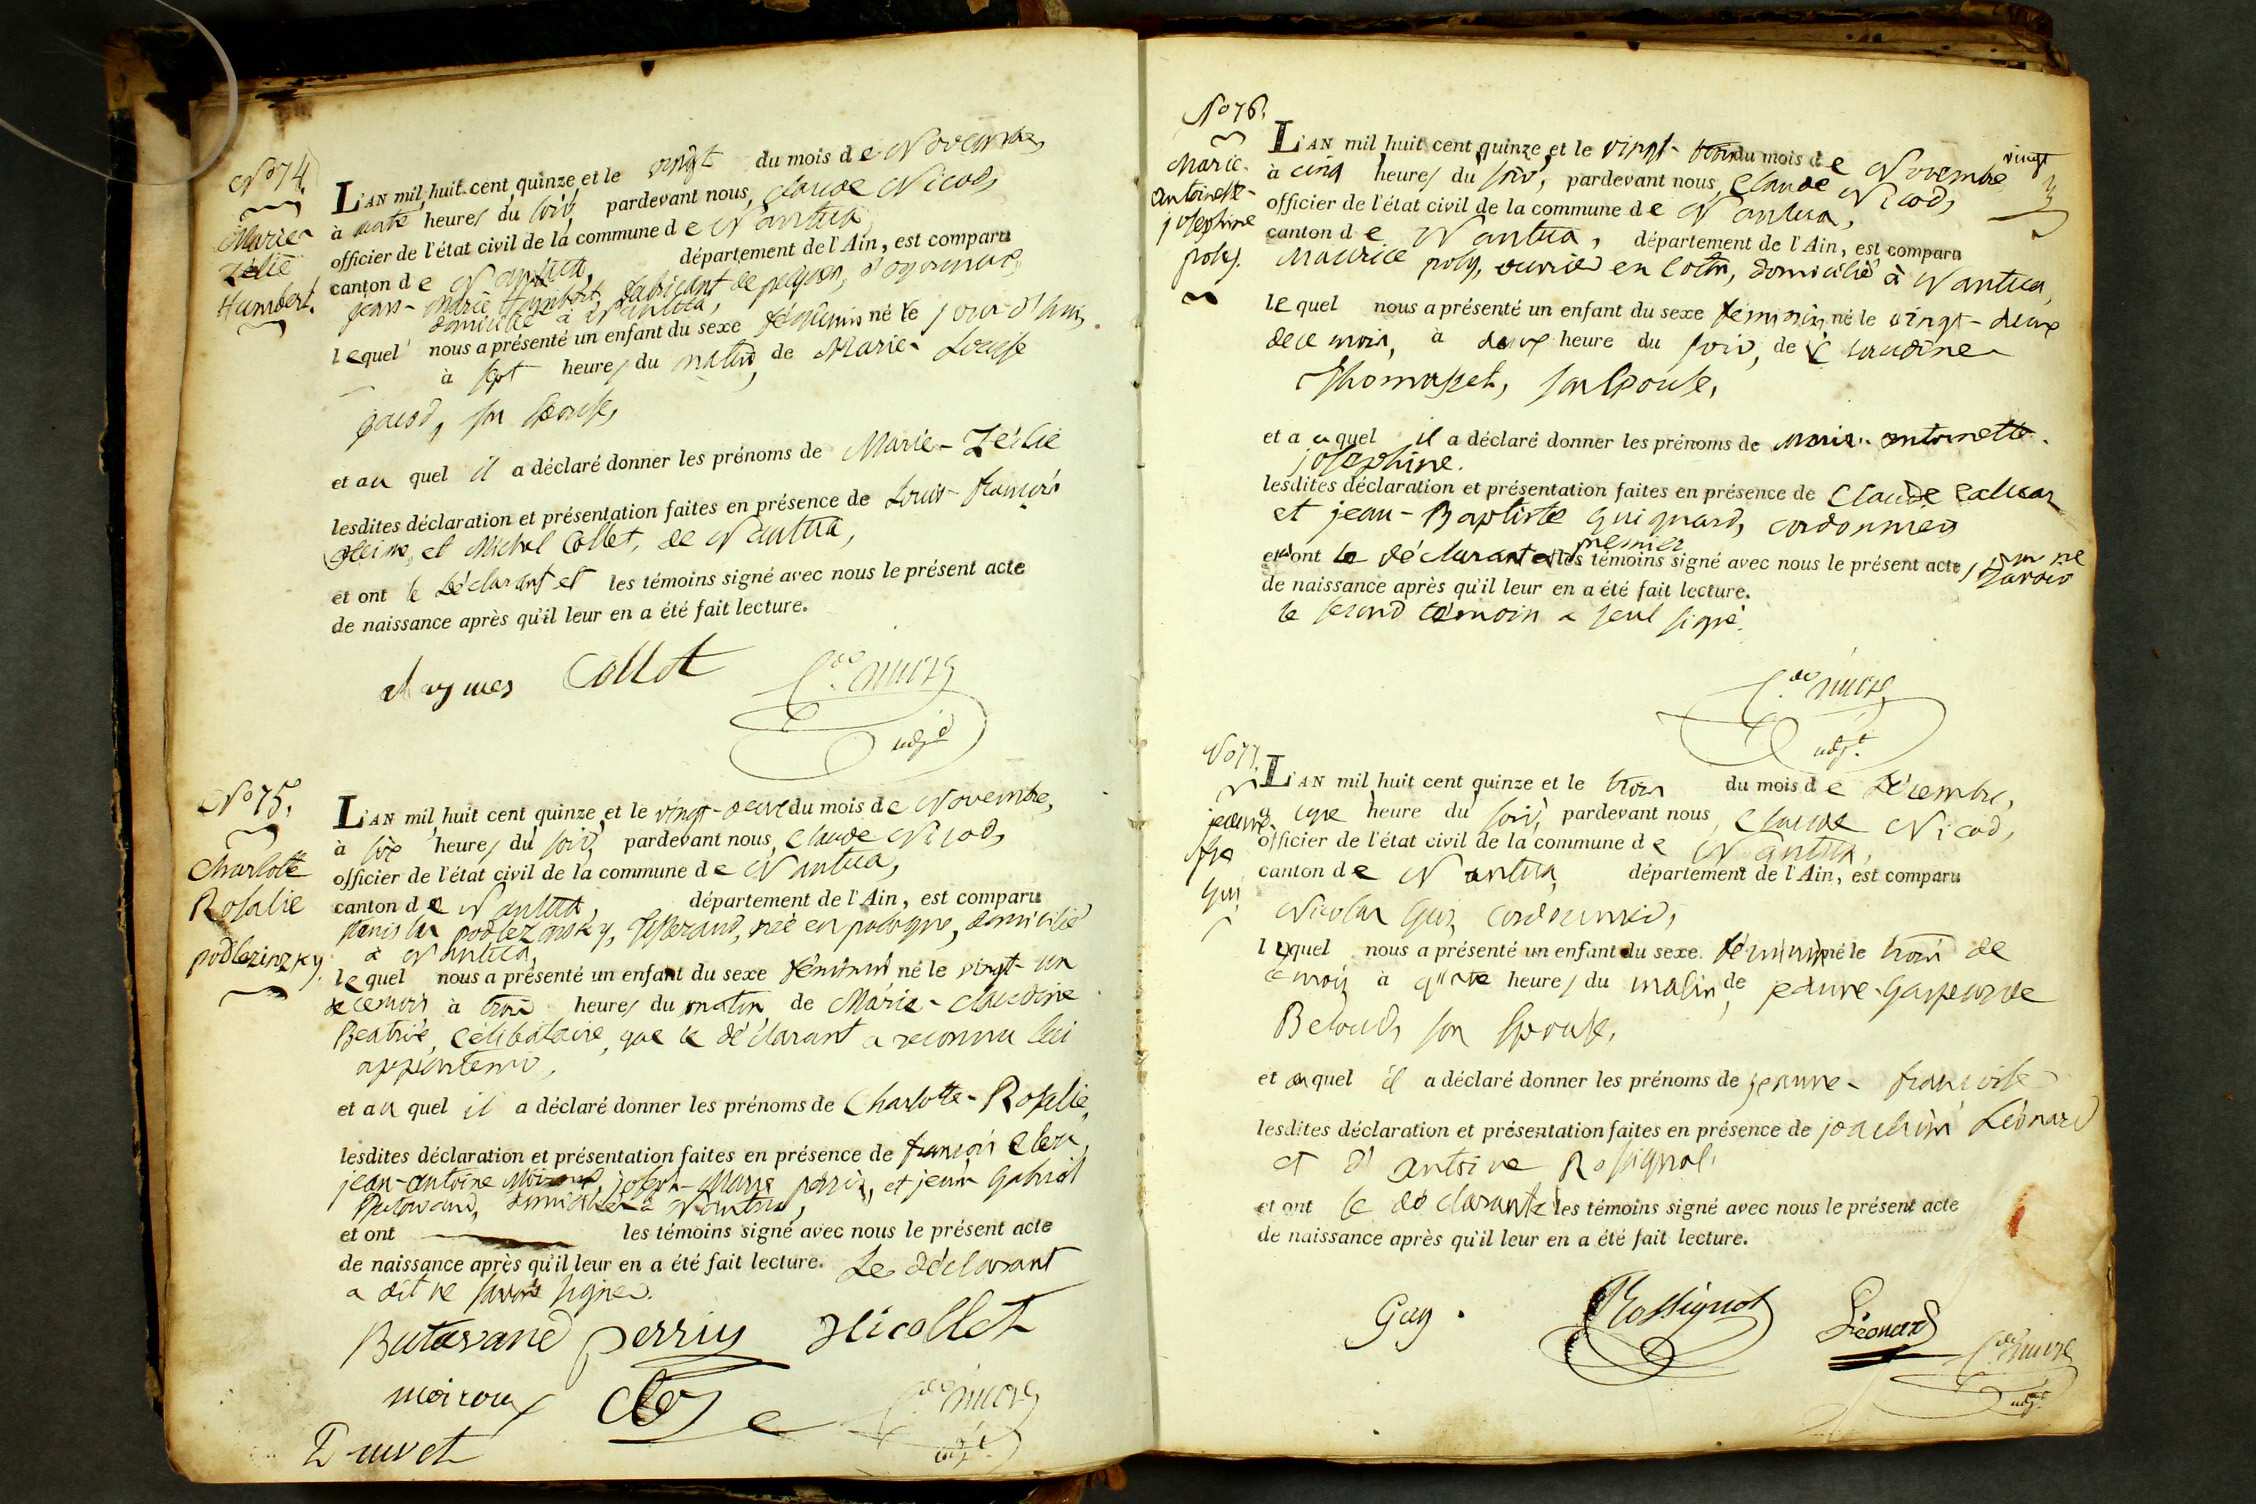 No 74.
Marie-
Zélie
Humbert.
L'AN mil huit cent quinze et le vingt du mois de Novembre,
à heures du soir, pardevant nous, Claude Nicod,
officier de l'état civil de la commune de Nantua,
canton de Nantua, département de l'Ain, est comparu
jean-Marie Humbert, fabricant de peignes,
domicilié à Nantua,
lequel nous a présenté un enfant du sexe féminin né le jour d'hui,
à sept heures du matin, de Marie-Louise
son Epouse,
et au quel il a déclaré donner les prénoms de Marie-Zélie
lesdites déclaration et présentation faites en présence de Louis-françois
et Michel Collet, de Nantua,
et ont le déclarant et les témoins signé avec nous le présent acte
de naissance après qu'il leur en a été fait lecture.
Collet
adjt
No 75.
Charlotte
Rosalie
podlezinzky.
L'AN mil huit cent quinze et le vingt-deux du mois de Novembre,
à six heures du soir, pardevant nous, Claude Nicod,
officier de l'état civil de la commune de Nantua,
canton de Nantua, département de l'Ain, est comparu
stanislas, tisserand, né en pologne, domicilié
à Nantua,
lequel nous a présenté un enfant du sexe féminin né le vingt-un
de ce mois à trois heures du matin, de Marie-Claudine
Beatrix, célibataire, que le déclarant a reconnu lui
appartenir,
et au quel il a déclaré donner les prénoms de Charlotte-Rosalie,
lesdites déclaration et présentation faites en présence de françois Clerc,
jean-antoine, joseph-Marie perrin, et jean Gabriel
Butavand, domiciliés à Nantua,
et ont les témoins signé avec nous le présent acte
de naissance après qu'il leur en a été fait lecture. Le déclarant
a dit ne savoir signer.
Butavand perrin Nicollet
moiroux
adjt
No 76.
Marie-
antoinette-
josephine
poly.
L'AN mil huit cent quinze et le vingt-trois du mois de Novembre
à cinq heures du soir, pardevant nous, Claude Nicod,
officier de l'état civil de la commune de Nantua,
canton de Nantua, département de l'Ain, est comparu
Maurice poly, ouvrier en coton, domicilié à Nantua,
lequel nous a présenté un enfant du sexe féminin né le vingt-deux
de ce mois, à deux heure du soir, de Claudine
Thomasset, son Epouse,
et a u quel il a déclaré donner les prénoms de Marie-antoinette-
josephine.
lesdites déclaration et présentation faites en présence de Claude
et jean-Baptiste Guignard, cordonnier
premier
et ont le déclarant et les témoins signé avec nous le présent acte
de naissance après qu'il leur en a été fait lecture.
le second témoin a seul signé.
adjt.
No 77.
jeanne
fse
Guy
L'AN mil huit cent quinze et le trois du mois de Décembre,
à une heure du soir, pardevant nous, Claude Nicod,
officier de l'état civil de la commune de Nantua,
canton de Nantua, département de l'Ain, est comparu
Nicolas Guy, cordonnier,
lequel nous a présenté un enfant du sexe féminin né le trois de
ce mois à quatre heures du matin, de jeanne-Gasparde
Beloud, son Epouse,
et auquel il a déclaré donner les prénoms de jeanne-françoise
lesdites déclaration et présentation faites en présence de joachim Léonard
et d'antoine Rossignol,
et ont le déclarant et les témoins signé avec nous le présent acte
de naissance après qu'il leur en a été fait lecture.
Guy. Rossignol Léonard
adjt.